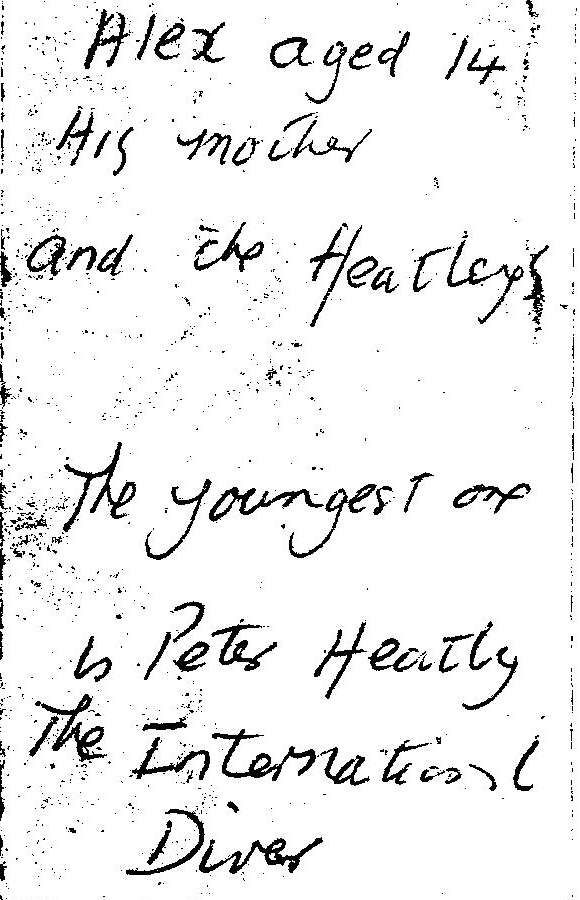 Alex aged 14
His mother
and the Heatleys
The youngest one
is Peter Heatly
The International
Diver